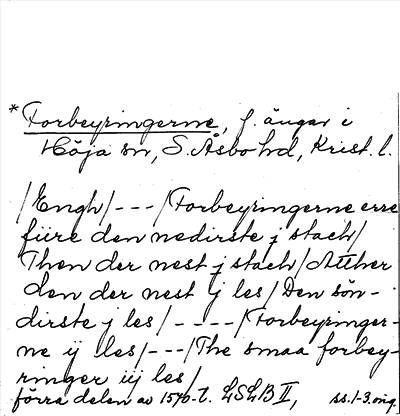 * Forbeyringerne, f. ängar i
Höja sn, S. Åsbo hd, Krist. l.
/Engh/---/Forbeyringerne erre
fiire den nedirste j stach/
Then der nest j stach/Atther
den der nest j les/Den sön-
dirste j les/----/Forbeyringer-
ne ij les/---/The smaa forbey-
ringer iij les/
förra delen av 1570-t. LSLB II, ss. 1-3. orig.